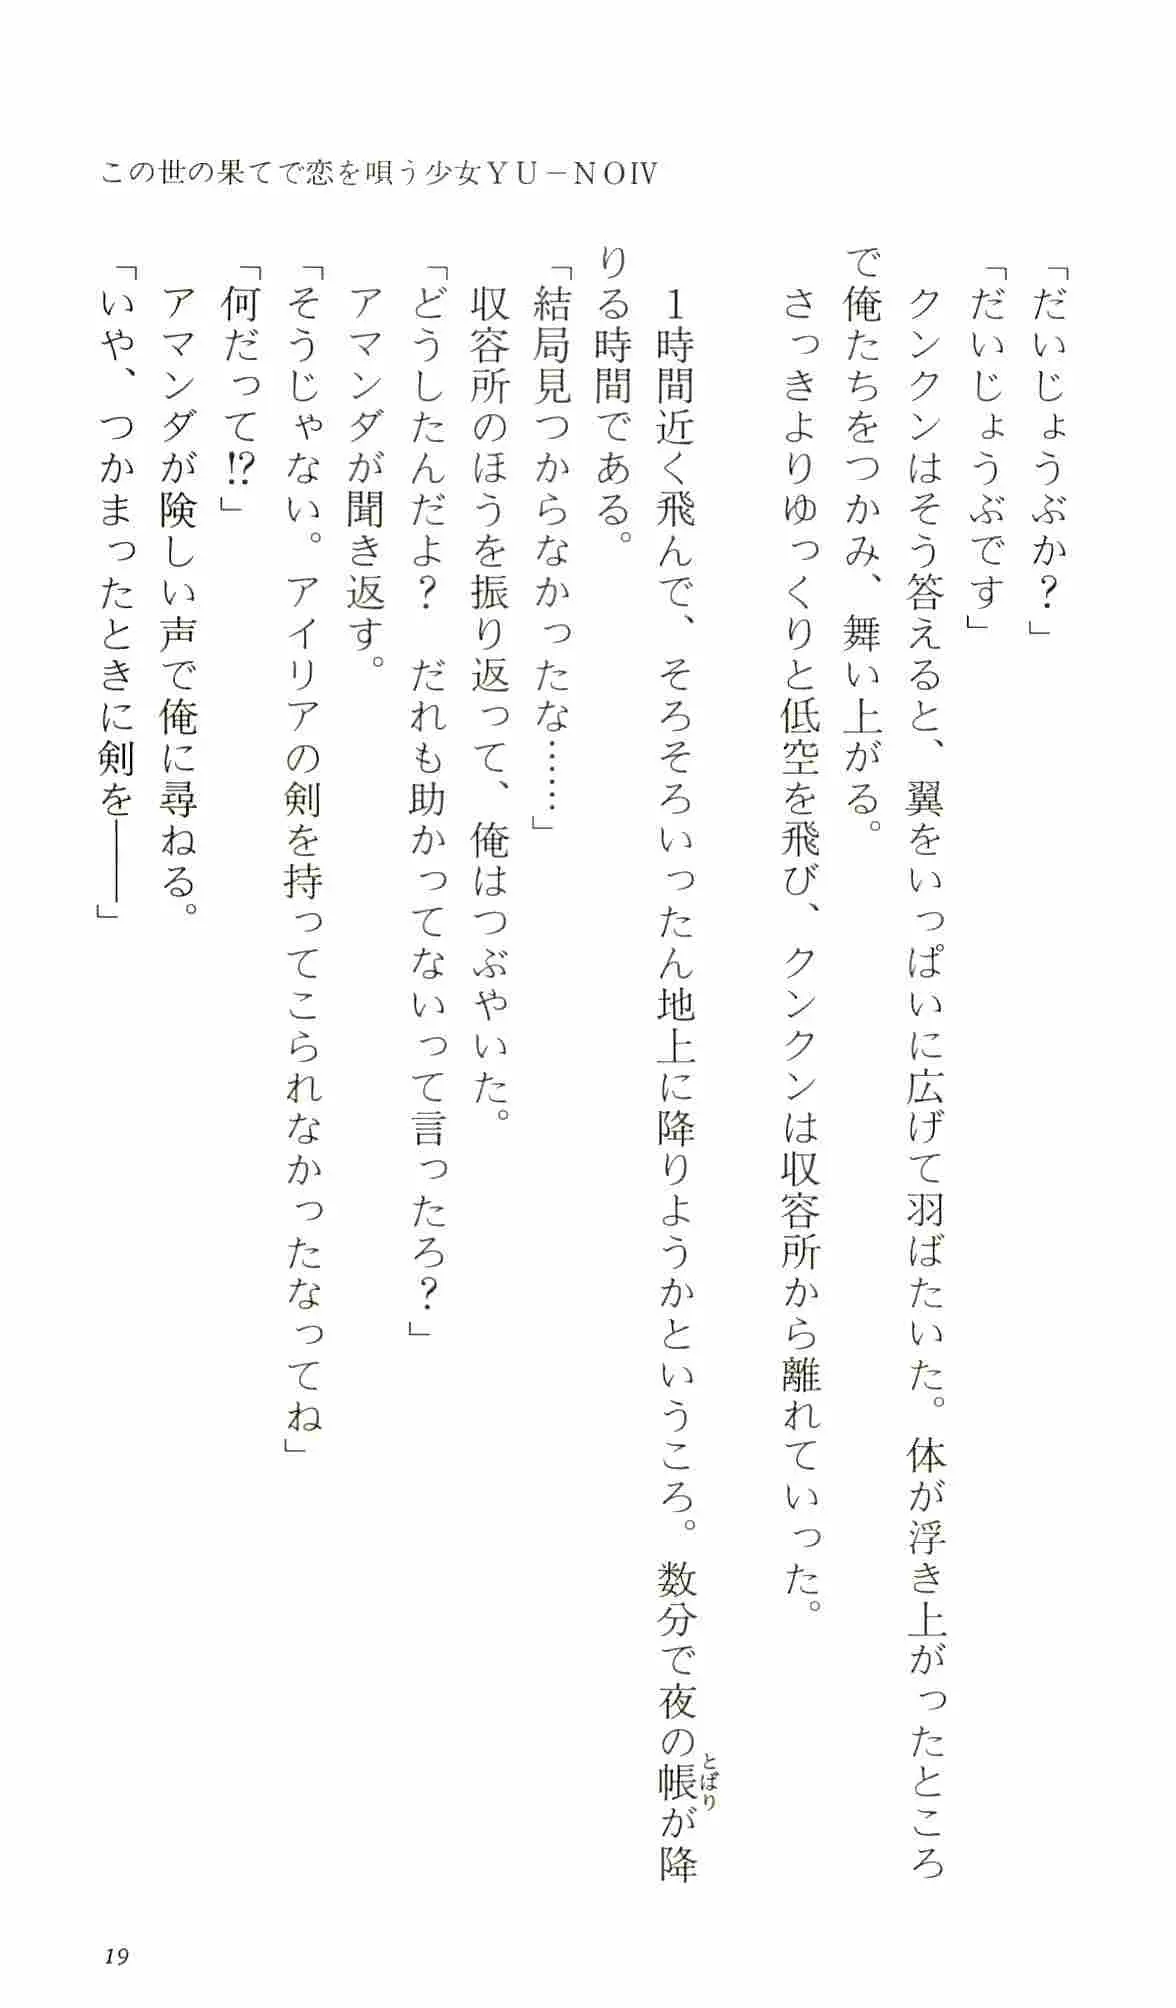 この世の果てで恋を唄う少女ＹＵ－ＮＯⅣ
「だいじょうぶか？」
「だいじょうぶです」
　クンクンはそう答えると、翼をいっぱいに広げて羽ばたいた。体が浮き上がったところ
で俺たちをつかみ、舞い上がる。
　さっきよりゆっくりと低空を飛び、クンクンは収容所から離れていった。
　１時間近く飛んで、そろそろいったん地上に降りようかというころ。数分で夜の帳が降
とばり
りる時間である。
「結局見つからなかったな……」
　収容所のほうを振り返って、俺はつぶやいた。
「どうしたんだよ？　だれも助かってないって言ったろ？」
　アマンダが聞き返す。
「そうじゃない。アイリアの剣を持ってこられなかったなってね」
「何だって!?」
　アマンダが険しい声で俺に尋ねる。
「いや、つかまったときに剣を――」
19